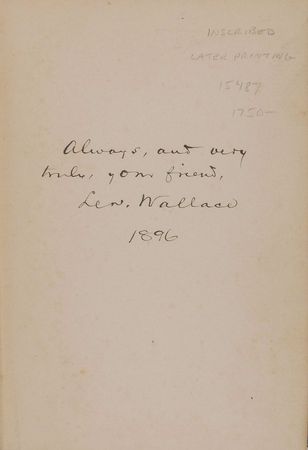 INSCRIBED
LATER PRINTING
15487
1750-
Always, and very
truly, your friend,
Lew. Wallace
1896